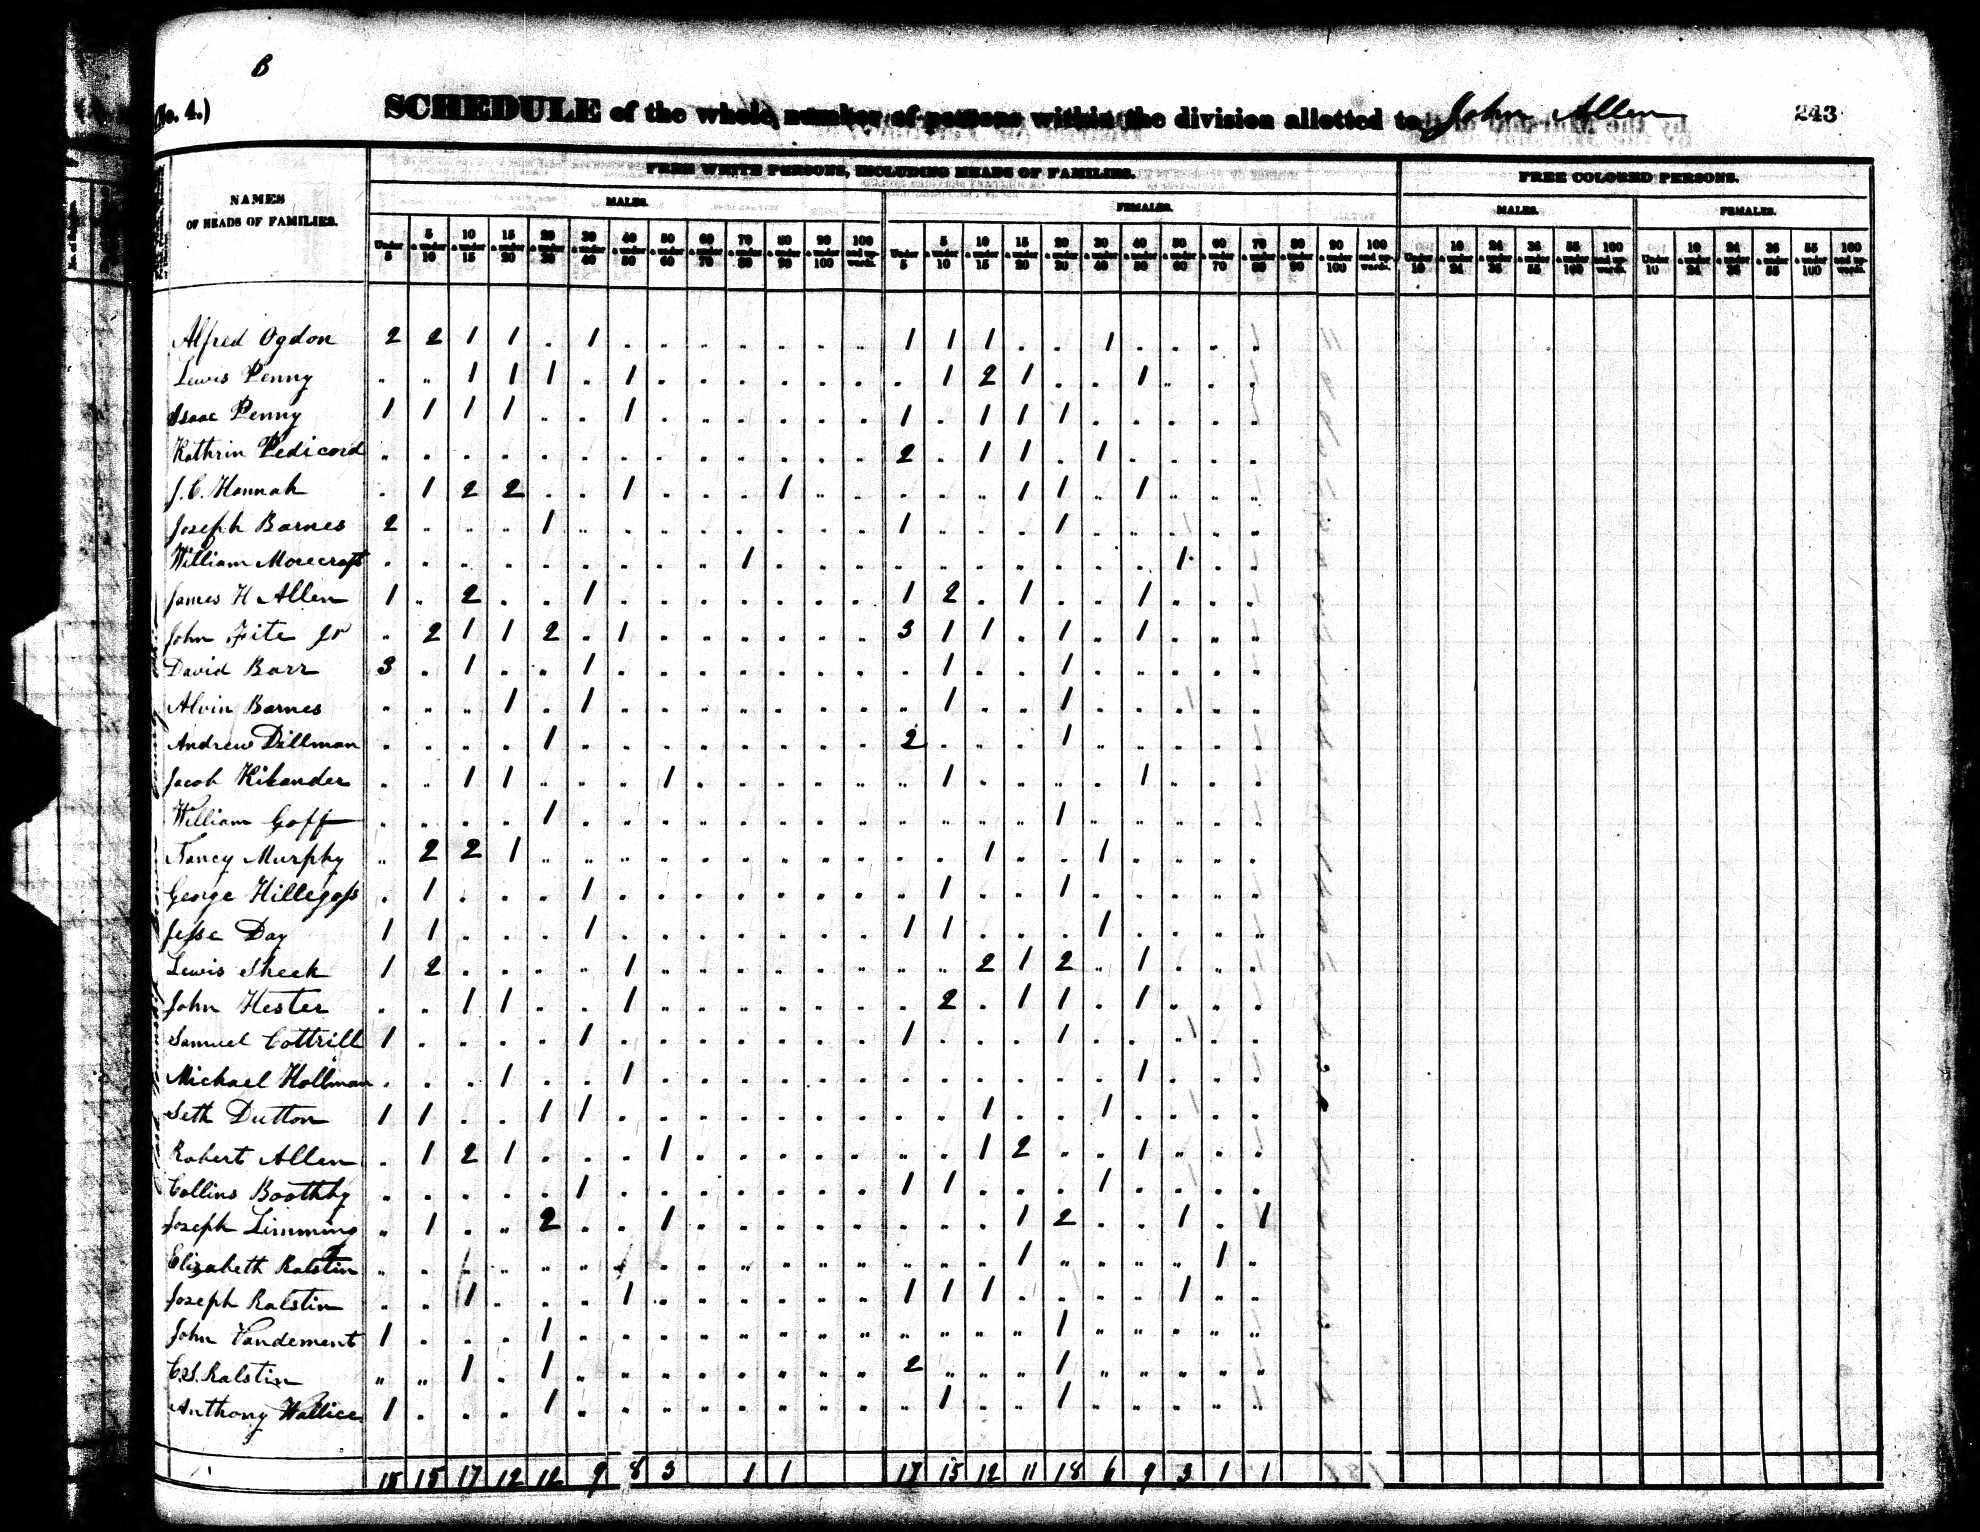 B
(No. 4.) SCHEDULE of the whole number of persons within the division allotted to John Allen 243
FREE WHITE PERSONS, INCLUDING HEADS OF FAMILIES. FREE COLORED PERSONS.
NAMES
OF HEADS OF FAMILIES.
MALES. FEMALES. MALES. FEMALES.
Under 5 5 & under 10 10 & under 15 15 & under 20 20 & under 30 30 & under 40 40 & under 50 50 & under 60 60 & under 70 70 & under 80 80 & under 90 90 & under 100 100 and upwards. Under 5 5 & under 10 10 & under 15 15 & under 20 20 & under 30 30 & under 40 40 & under 50 50 & under 60 60 & under 70 70 & under 80 80 & under 90 90 & under 100 100 and upwards. Under 10 10 & under 24 24 & under 36 36 & under 55 55 & under 100 100 and upwards. Under 10 10 & under 24 24 & under 36 36 & under 55 55 & under 100 100 and upwards.
Alfred Ogdon 2 2 1 1 1 1 1 1 1
Lewis Penny 1 1 1 1 1 2 1 1
Isaac Penny 1 1 1 1 1 1 1 1 1
Kathrin Pedicord 2 1 1 1
J. C. Hannah 1 2 2 1 1 1 1 1
Joseph Barnes 2 1 1 1
William Morecraft 1 1
James H Allen 1 2 1 1 2 1 1
John Fite Jr 2 1 1 2 1 3 1 1 1 1
David Barr 3 1 1 1 1
Alvin Barnes 1 1 1 1
Andrew Dillman 1 2 1
Jacob Hikander 1 1 1 1 1
William Goff 1 1
Nancy Murphy 2 2 1 1 1
George Hillegoss 1 1 1 1
Jesse Day 1 1 1 1 1 1
Lewis Sheek 1 2 1 2 1 2 1
John Hester 1 1 1 2 1 1 1
Samuel Cottrill 1 1 1 1
Michael Hollman 1 1 1
Seth Dutton 1 1 1 1 1 1
Robert Allen 1 2 1 1 1 2 1
Collins Boothby 1 1 1 1
Joseph Limming 1 2 1 1 2 1 1
Elizabeth Ralstin 1 1
Joseph Ralstin 1 1 1 1 1 1
John Vandement 1 1 1
Ralstin 1 1 2 1
Anthony Wallice 1 1 1 1
15 15 17 12 12 9 8 3 1 1 17 15 12 11 18 6 9 3 1 1